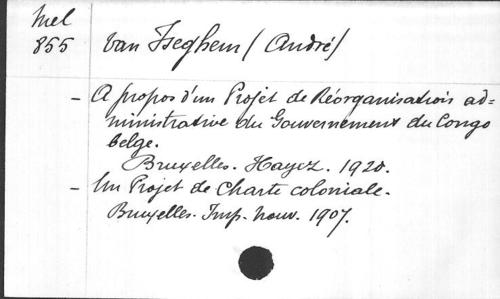 Mel
855
van Iseghem (André)
- A propos d'un Projet de Réorganisation ad=
ministrative du Gouvernement du Congo
belge.
Bruxelles. Hayez. 1920.
- Un Projet de Charte coloniale.
Bruxelles. Imp. nouv. 1907.